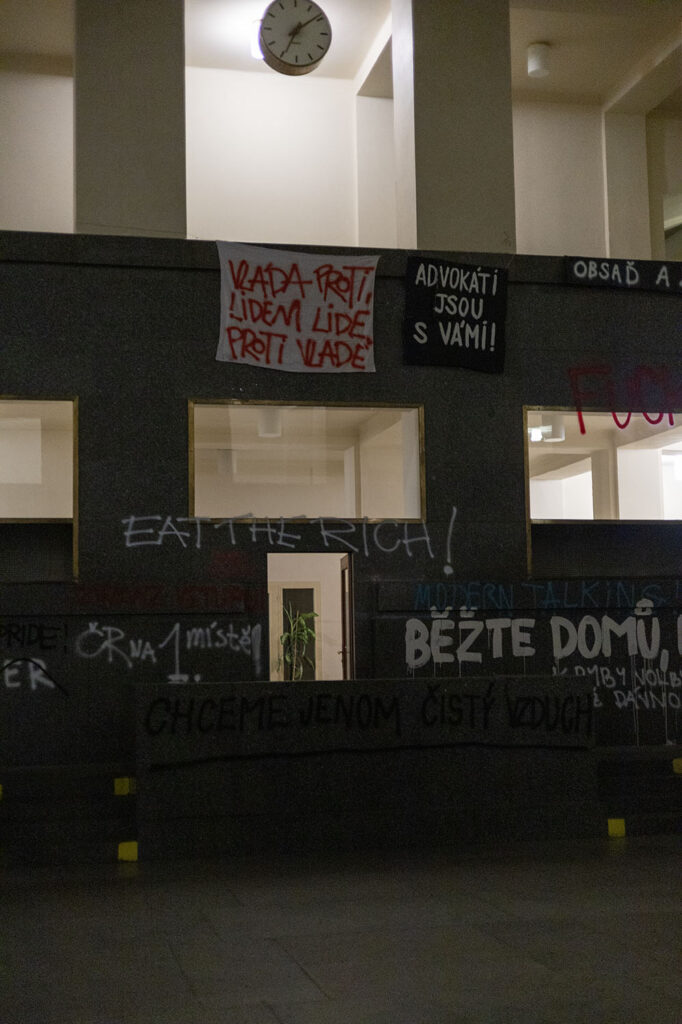 VLÁDA PROTI
LIDEM LIDÉ
PROTI VLÁDĚ
ADVOKÁTI
JSOU
S VÁMI!
OBSAĎ A
FUCK
EAT THE RICH!
MODERN TALKING!
PRIDE!
ČR NA 1. místě!
BĚŽTE DOMŮ,
KDYBY
DÁVNO
CHCEME JENOM ČISTÝ VZDUCH